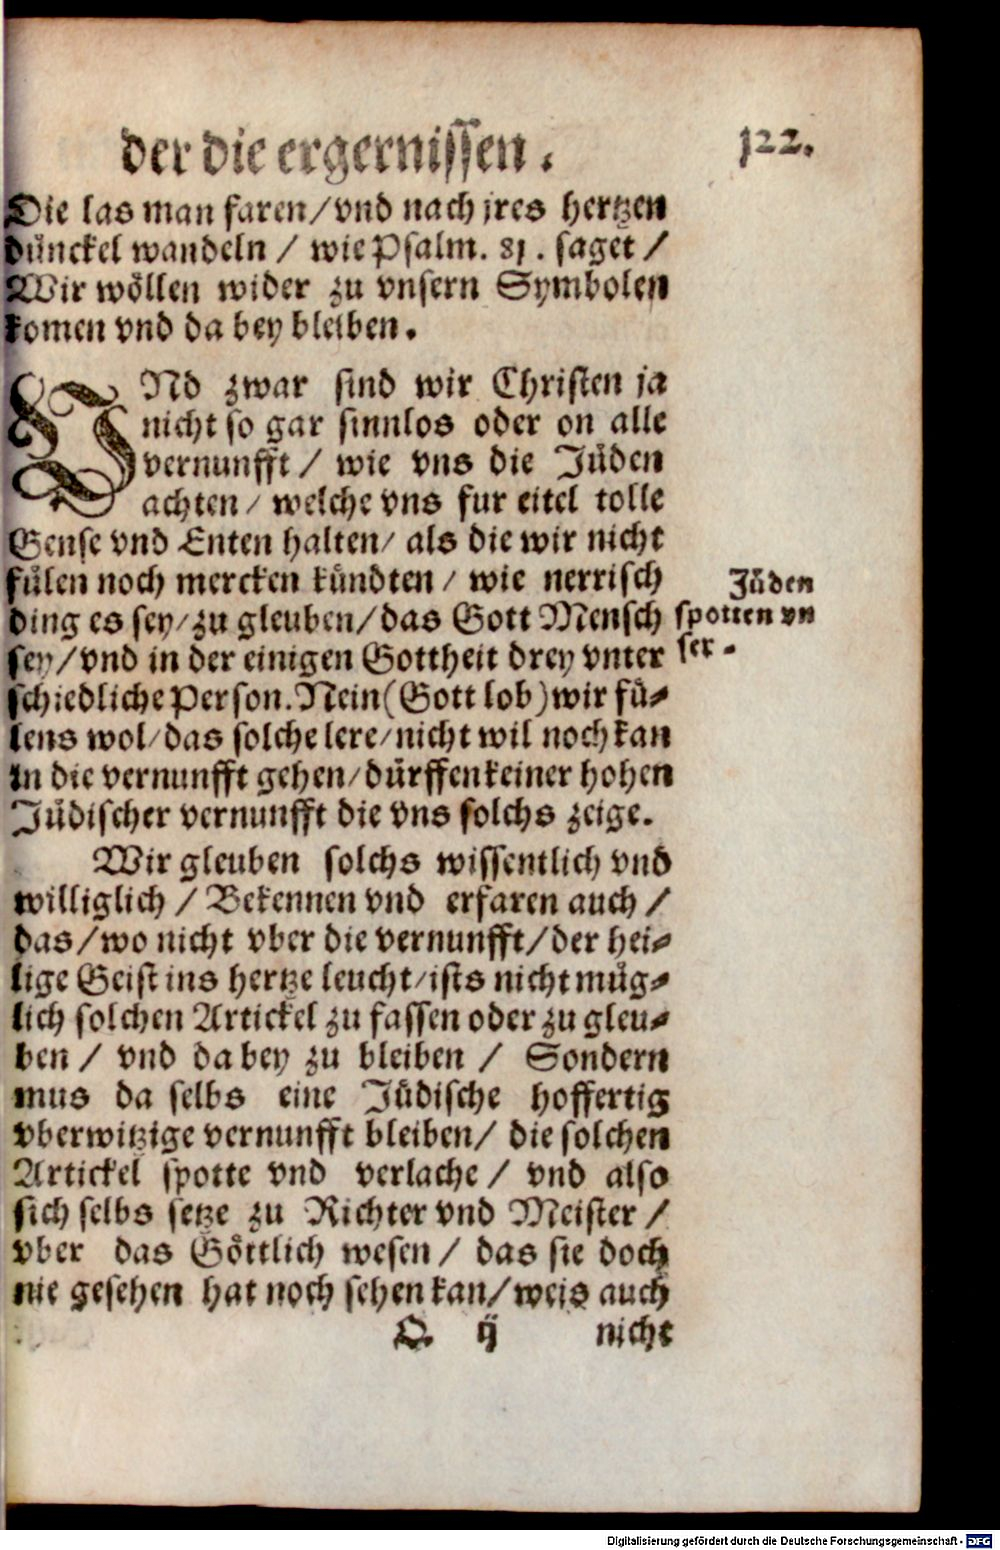 der die ergernissen.
122.
Die las man faren/vnd nach jres hertzen
dünckel wandeln / wie Psalm. 81. saget /
Wir wöllen wider zu vnsern Symbolen
komen vnd da bey bleiben.
VNd zwar sind wir Christen ja
nicht so gar sinnlos oder on alle
vernunfft / wie vns die Jüden
achten/ welche vns fur eitel tolle
Gense vnd Enten halten/ als die wir nicht
fülen noch mercken kündten / wie nerrisch
ding es sey/zu gleuben/das Gott Mensch
sey/vnd in der einigen Gottheit drey vnter
schiedliche Person. Nein (Gott lob) wir fü-
lens wol/das solche lere/nicht wil noch kan
in die vernunfft gehen/dürffen keiner hohen
Jüdischer vernunfft die vns solchs zeige.
Jüden
spotten vn
ser.
Wir gleuben solchs wissentlich vnd
williglich / Bekennen vnd erfaren auch /
das/wo nicht vber die vernunfft/der hei-
lige Geist ins hertze leucht/ists nicht müg-
lich solchen Artickel zu fassen oder zu gleu-
ben / vnd da bey zu bleiben / Sondern
mus da selbs eine Jüdische hoffertig
vberwitzige vernunfft bleiben/ die solchen
Artickel spotte vnd verlache / vnd also
sich selbs setze zu Richter vnd Meister /
vber das Göttlich wesen / das sie doch
nie gesehen hat noch sehen kan/weis auch
Q ij nicht
Digitalisierung gefördert durch die Deutsche Forschungsgemeinschaft - DFG